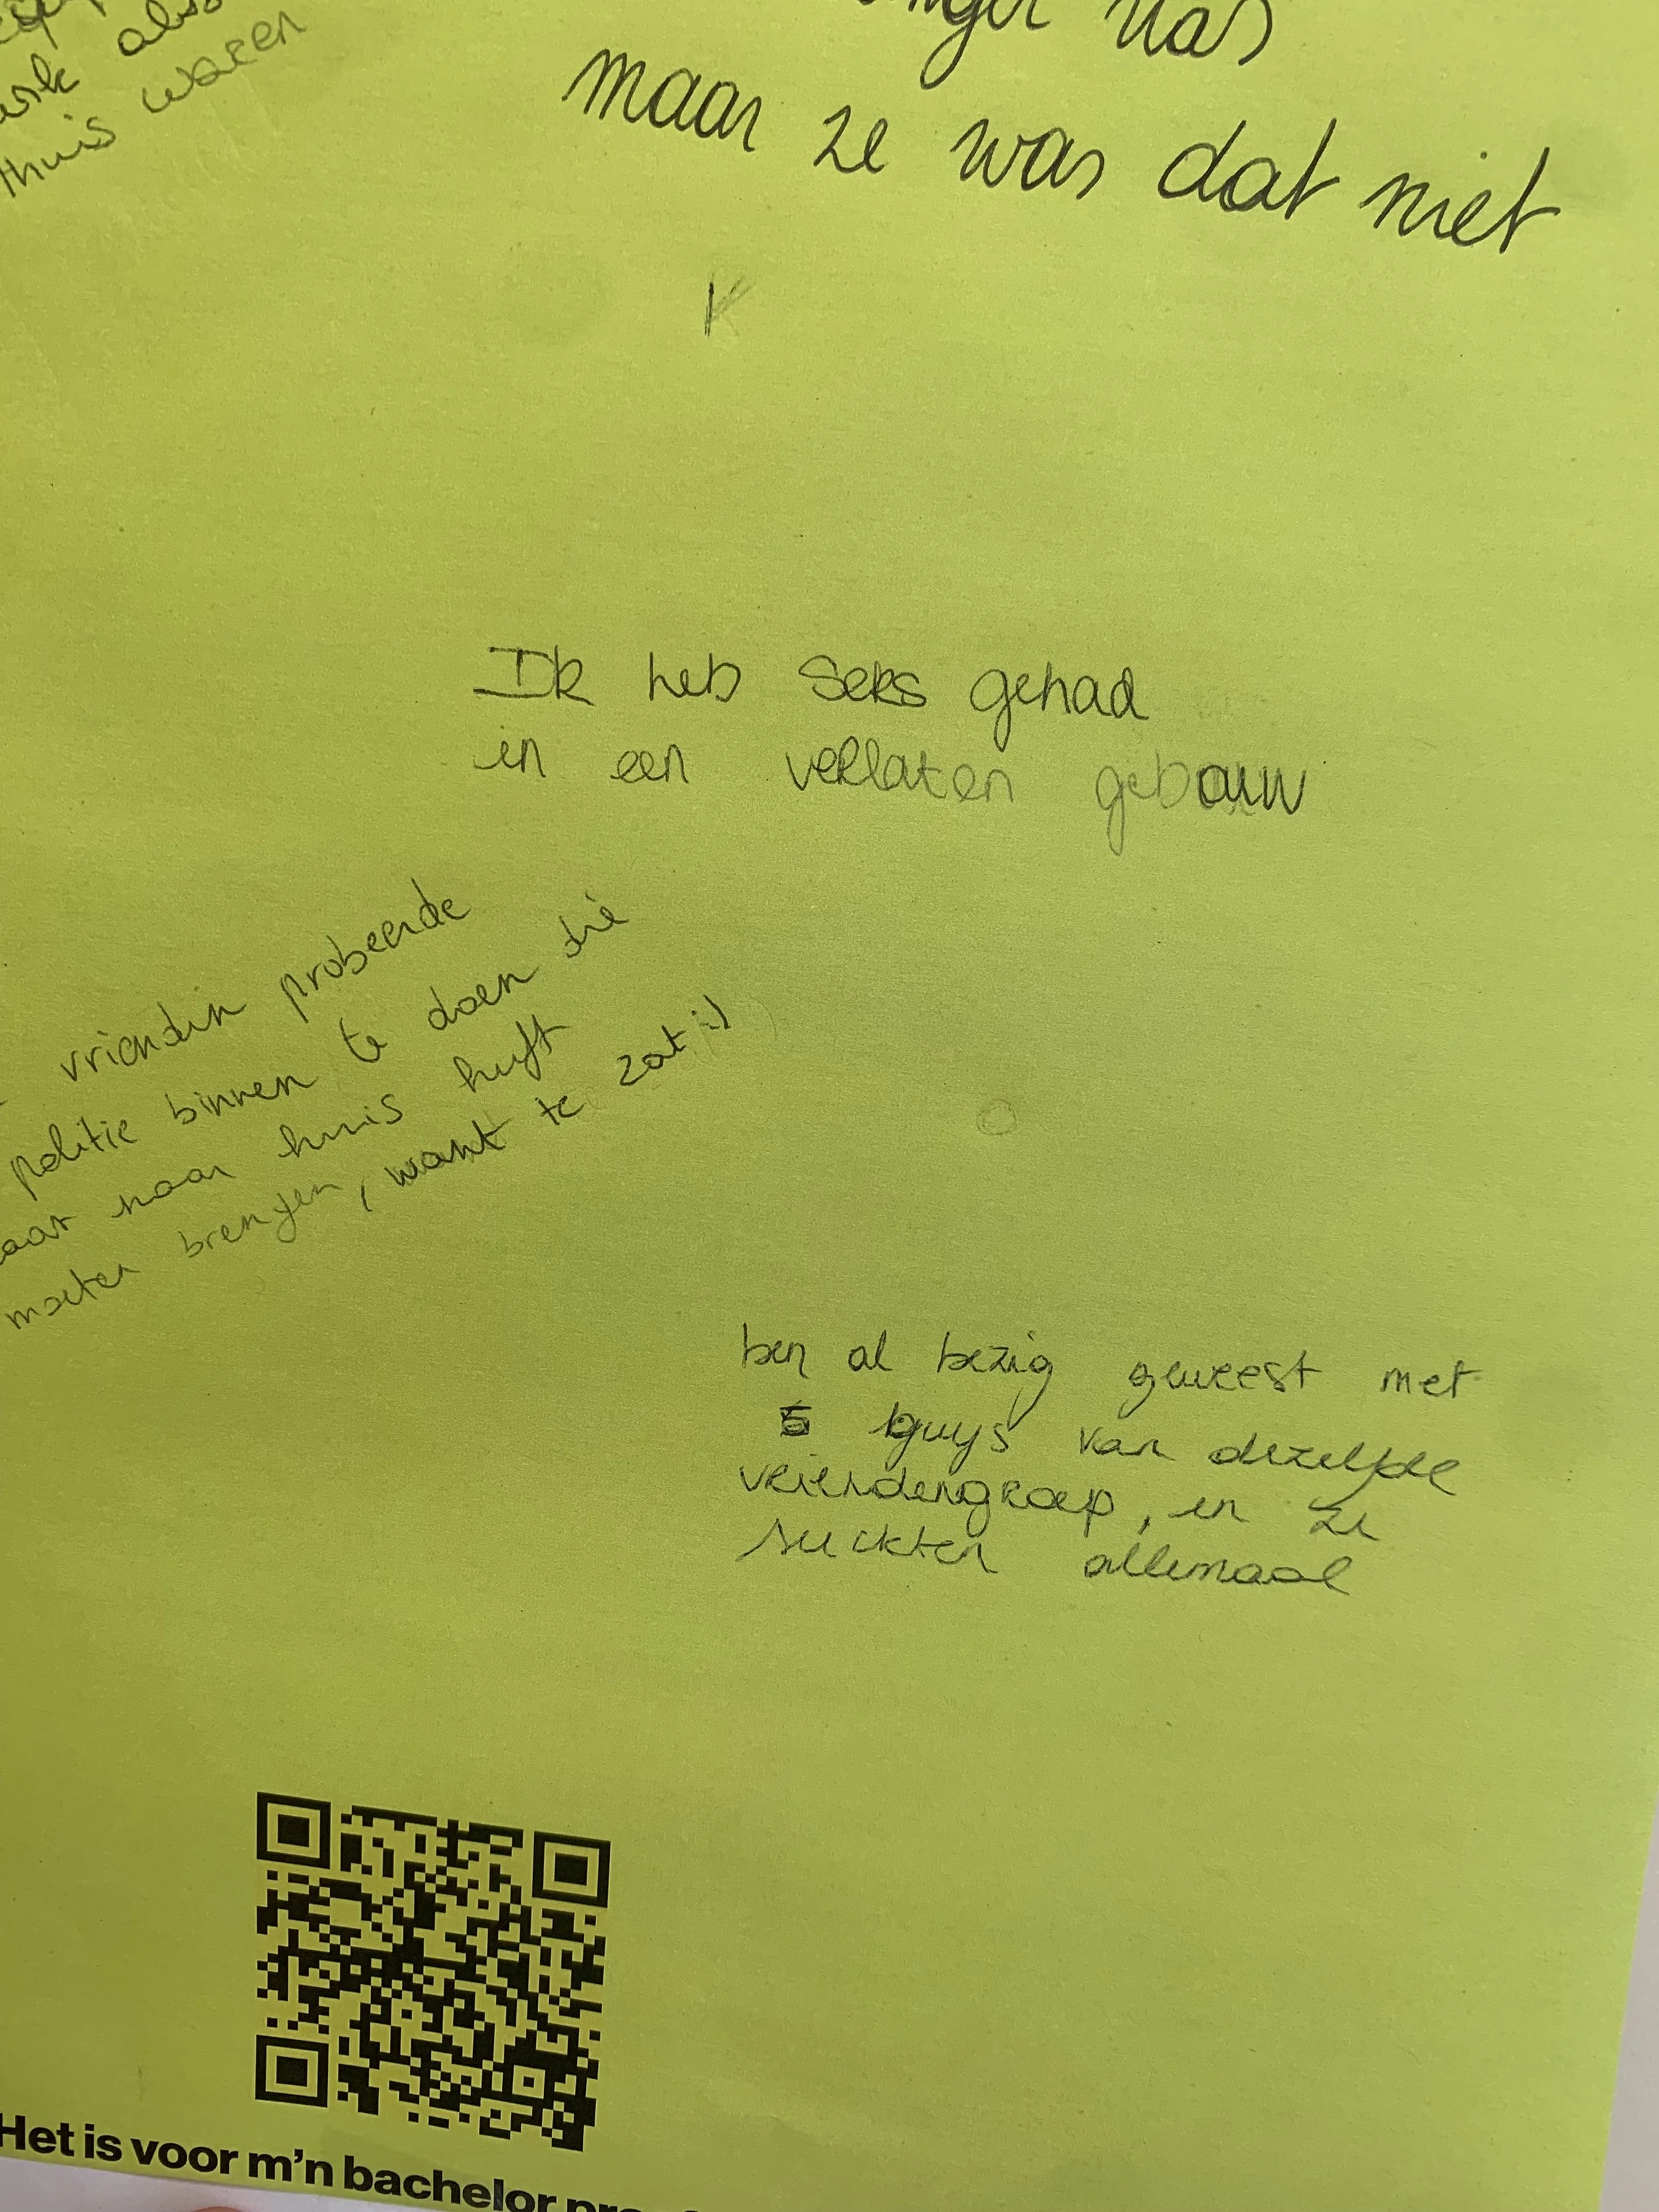 thuis waren
maar ze was dat niet
Ik heb seks gehad
in een verlaten gebouw
vriendin probeerde
politie binnen te doen die
naar huis heeft
moeten brengen, want te zat :)
ben al bezig geweest met
5 guys van dezelfde
vriendengroep, en ze
suckten allemaal
Het is voor m'n bachelor